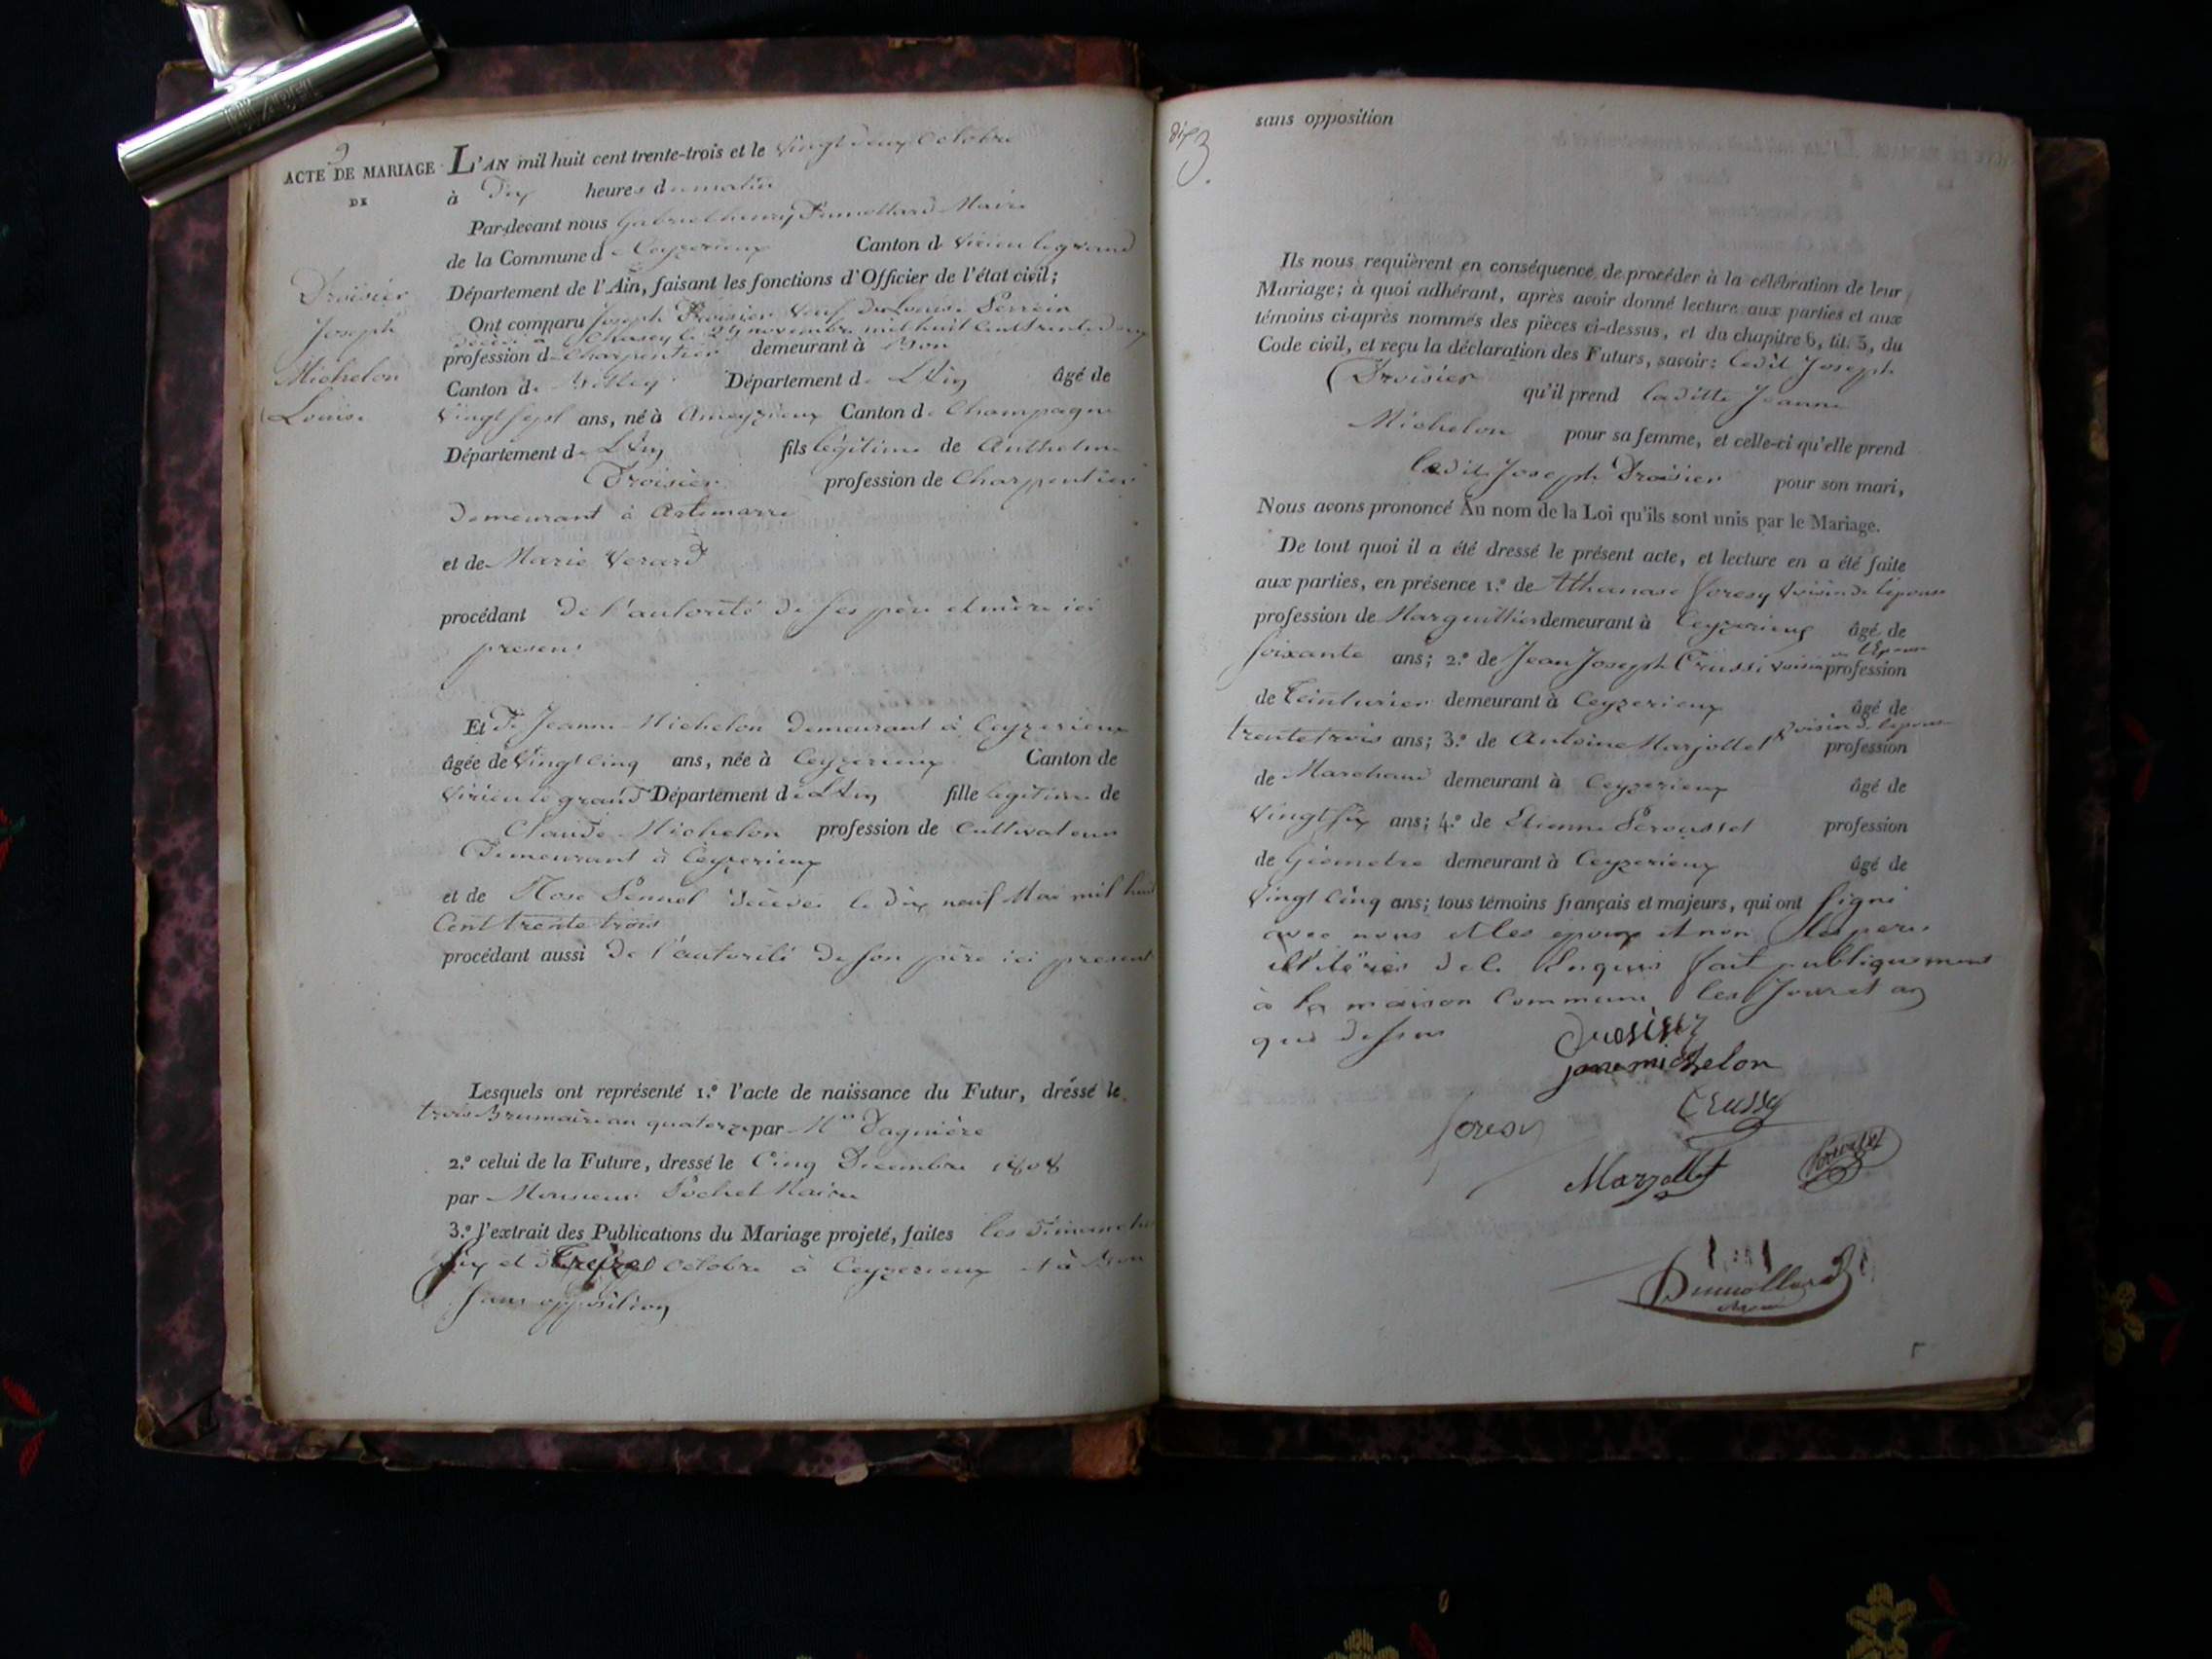 9
ACTE DE MARIAGE
DE
Droisier
Joseph
Michelon
Louise
L'AN mil huit cent trente-trois et le vingt deux octobre
à Dix heures du matin
Par-devant nous Gabriel henry Dumollard Maire
de la Commune de Ceyzerieux Canton de Virieu le grand
Département de l'Ain, faisant les fonctions d'Officier de l'état civil;
Ont comparu Joseph Droisier veuf de Louise Perrein
décédé à Chasey le 29 novembre mil huit cent trente deux
profession de Charpentier demeurant à
Canton de Département de L'Ain âgé de
vingt sept ans, né à Ameyzieux Canton de Champagne
Département de L'Ain fils légitime de Anthelme
Droisier profession de Charpentier
demeurant à Artemarre
et de Marie Verard
procédant de l'autorité de ses père et mère ici
presens
Et De Jeanne Michelon demeurant à Ceyzerieux
âgée de vingt cinq ans, née à Ceyzerieux Canton de
Virieu le grand Département de L'Ain fille legitime de
Claude Michelon profession de Cultivateur
Demeurant à Ceyzerieux
et de Rose Pennel décédée le dix neuf Mai mil huit
Cent trente trois
procédant aussi de l'autorité de son père ici present
Lesquels ont représenté 1.º l'acte de naissance du Futur, dréssé le
trois Brumaire an quatorze par Mr Dagnière
2.º celui de la Future, dressé le Cinq Decembre 1808
par Monsieur Pochet Maire
3.º l'extrait des Publications du Mariage projeté, faites les dimanches
six et Treize octobre à Ceyzerieux et à
sans opposition
dix
3
sans opposition
Ils nous requièrent en conséquence de procéder à la célébration de leur
Mariage; à quoi adhérant, après avoir donné lecture aux parties et aux
témoins ci-après nommés des pièces ci-dessus, et du chapitre 6, tit. 5, du
Code civil, et reçu la déclaration des Futurs, savoir: ledit Joseph
Droisier qu'il prend laditte Jeanne
Michelon pour sa femme, et celle-ci qu'elle prend
ledit Joseph Droisier pour son mari,
Nous avons prononcé Au nom de la Loi qu'ils sont unis par le Mariage.
De tout quoi il a été dressé le présent acte, et lecture en a été faite
aux parties, en présence 1.º de Athanase Soresy voisin de l'épouse
profession de Marguillier demeurant à Ceyzerieux âgé de
soixante ans; 2.º de Jean Joseph Crussi voisin de l'Epouse profession
de Teinturier demeurant à Ceyzerieux âgé de
trente trois ans; 3.º de Antoine Marjollet voisin de l'epouse profession
de Marchand demeurant à Ceyzerieux âgé de
vingt six ans; 4.º de Etienne Perousset profession
de Géometre demeurant à Ceyzerieux âgé de
vingt cinq ans; tous témoins français et majeurs, qui ont signé
avec nous et les epoux et non les peres
illitérés de ce enquis fait publiquement
à la maison Commune les Jour et an
que dessus
Droisier
jane michelon
Soresy
Crussy
Marjollet
Perousset
Dumollard